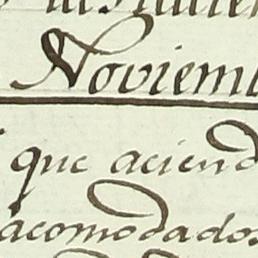 Noviem
que aciend
acomodados